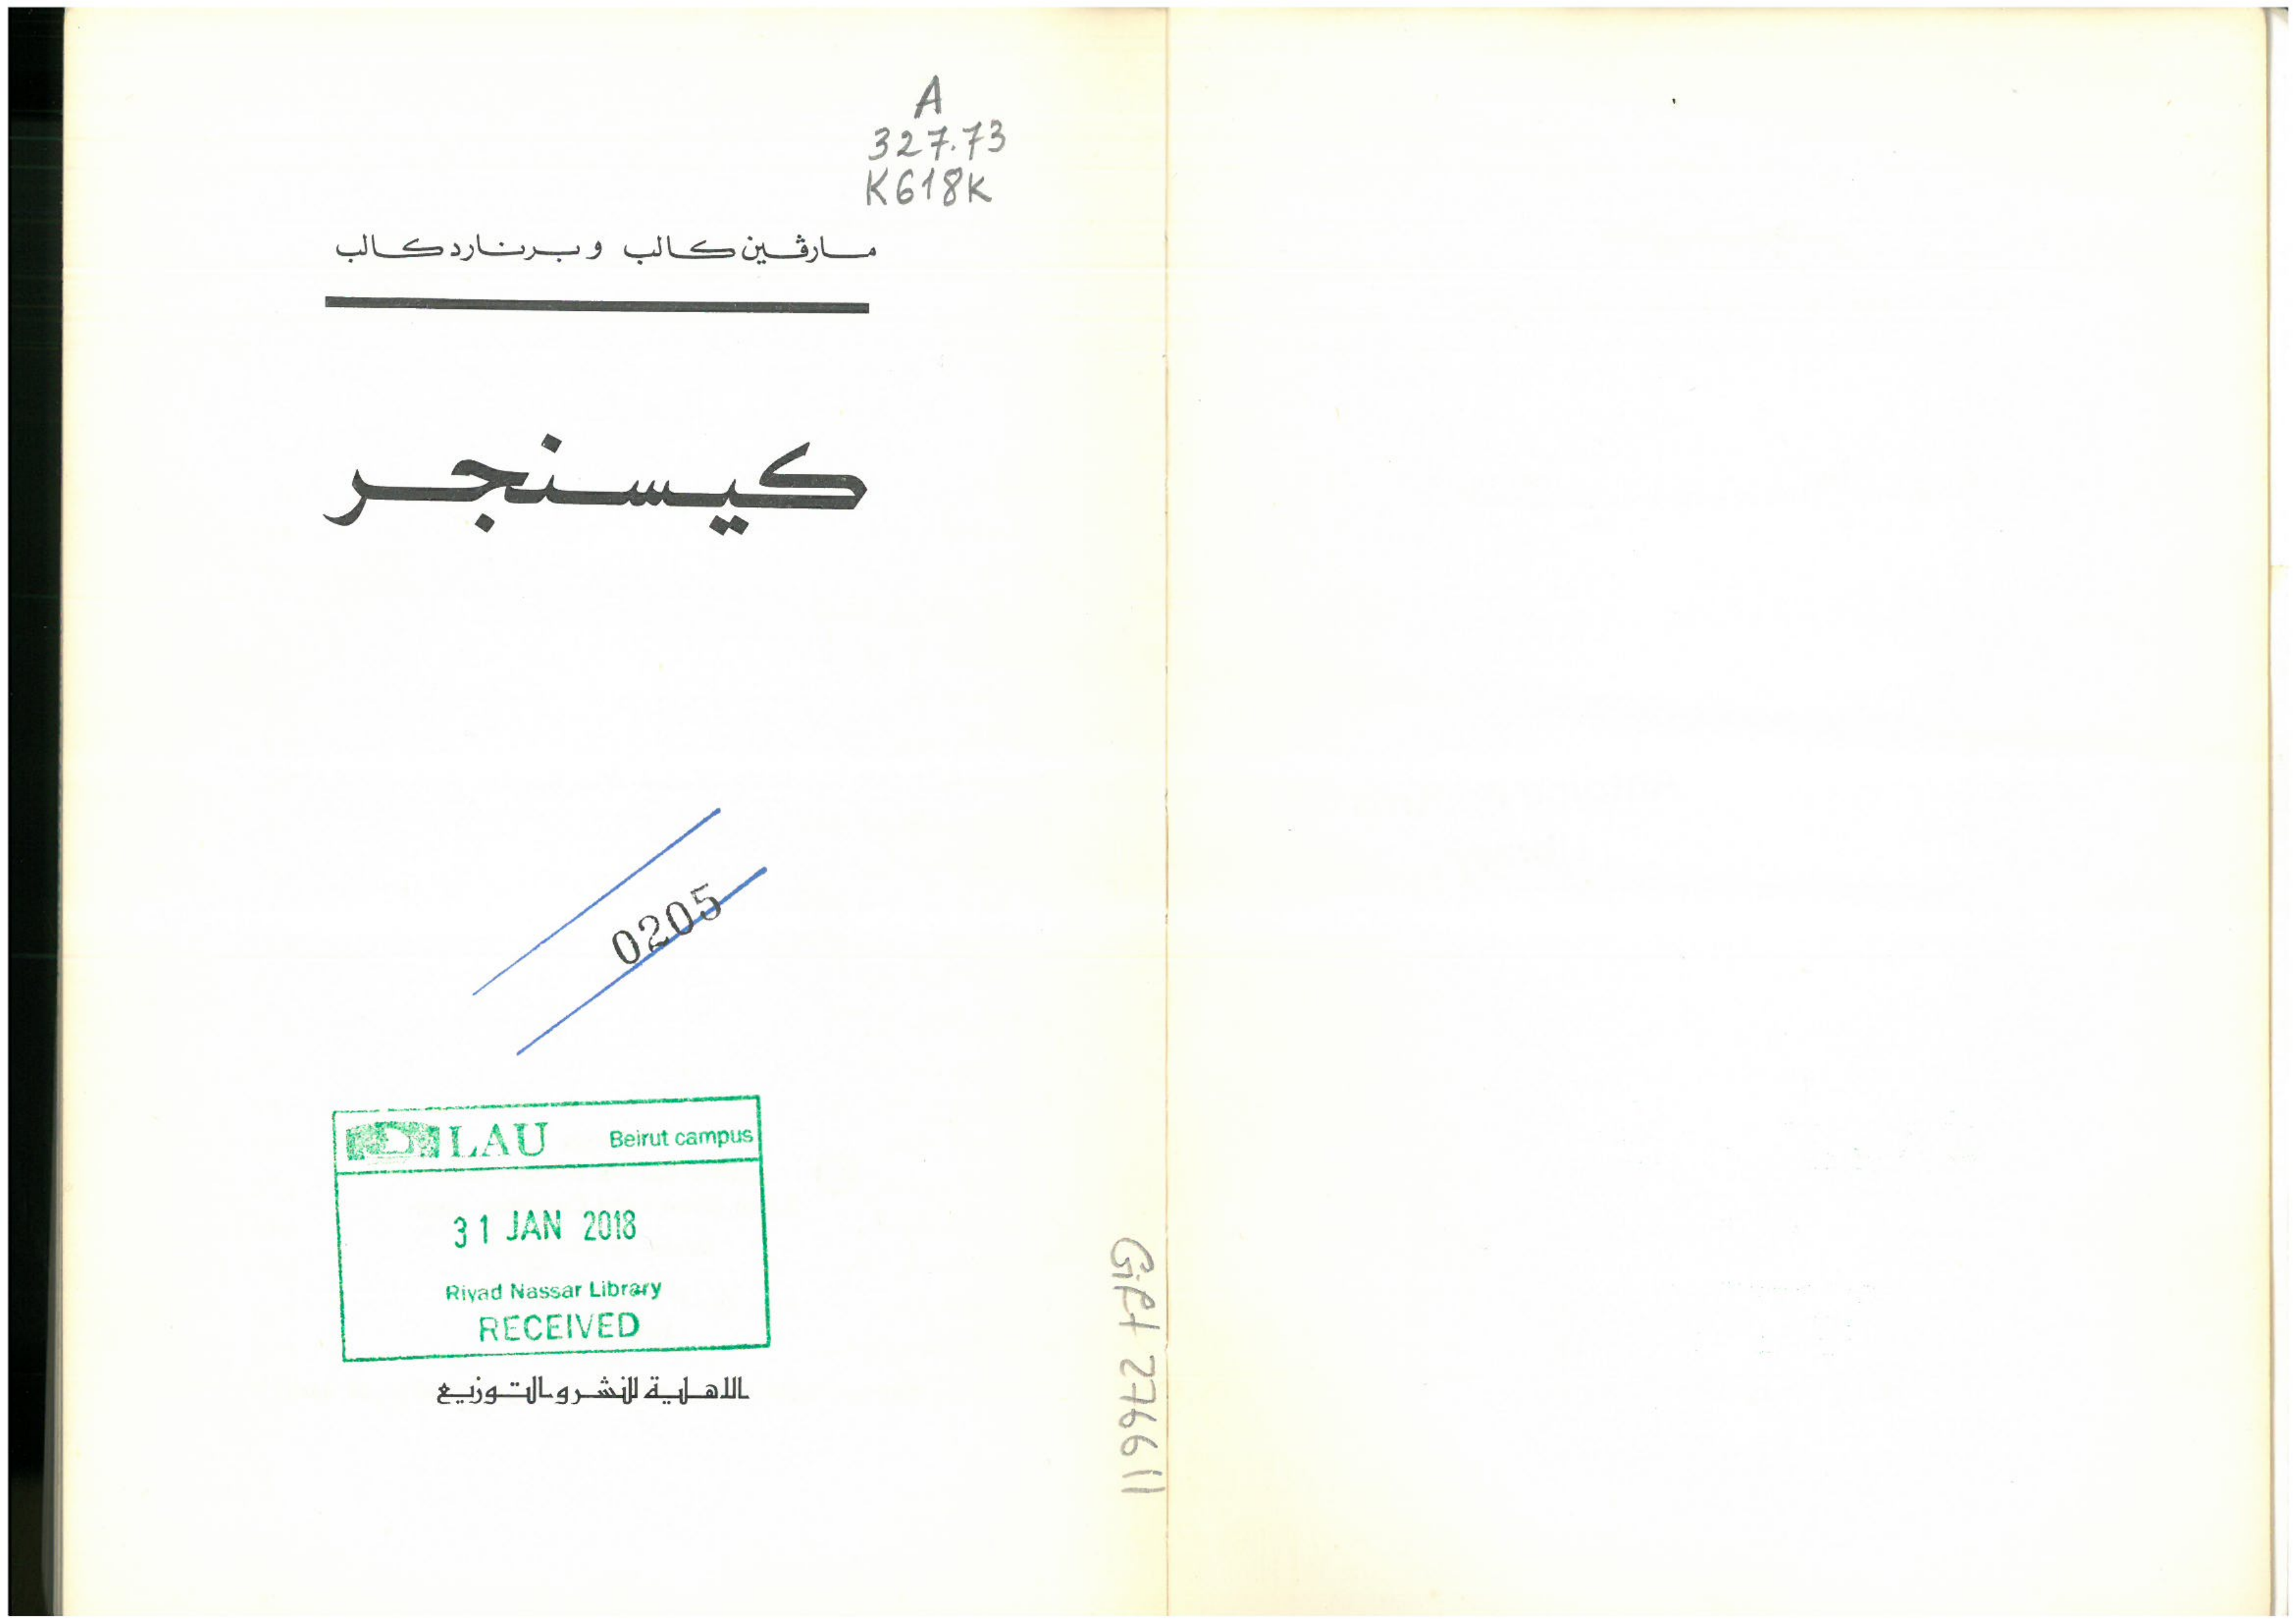 A
327.73
K618K
مارڤين كالب وبرنارد كالب
كيسنجر
0205
LAU Beirut campus
31 JAN 2018
Riyad Nassar Library
RECEIVED
الاهلية للنشر والتوزيع
Gift 276611